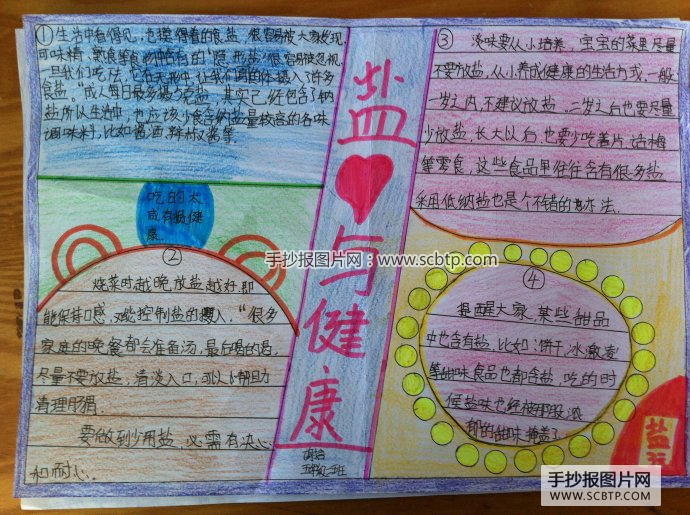 ① 生活中看得见,也摸得着的食盐,很容易被大家发现,
可味精、
食盐。"成人每日最多摄6克盐,其实已经包含了钠
盐所以生活中,也应该少食含钠盐量较高的各味
调味料,比如酱油、辣椒酱等。
吃的太
咸有损健
康.
②
烧菜时越晚放盐越好,即
能保持口感,又能控制盐的摄入。"很多
家庭的晚餐都会准备汤,最后喝的汤,
尽量不要放盐,清淡入口,可以帮助
清理肠胃
要做到少用盐,必需有决心
和耐心。
盐与健康
五年级一班
③ 淡味要从小培养,宝宝的菜里尽量
不要放盐,从小养成健康的生活方式,一般
一岁之内,不建议放盐,二岁之后也要尽量
少放盐,长大以后,也要少吃薯片、话梅
等零食,这些食品里往往含有很多盐
采用低纳盐也是个不错的办法.
④
提醒大家,某些甜品
中也含有盐,比如:饼干,冰激凌
等甜味食品也都含盐,吃的时
候盐味已经被那股浓
郁的甜味掩盖了
盐
手抄报图片网:www.scbtp.com
手抄报图片网
WWW.SCBTP.COM